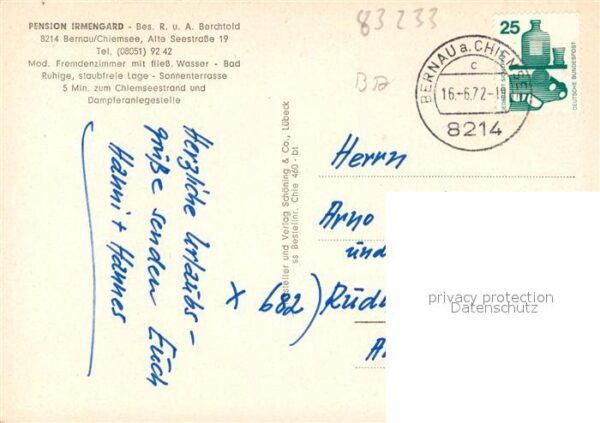 PENSION IRMENGARD - Bes. R. u. A. Berchtold
8214 Bernau/Chiemsee, Alte Seestraße 19
Tel. (08051) 92 42
Mod. Fremdenzimmer mit fließ. Wasser - Bad
Ruhige, staubfreie Lage - Sonnenterrasse
5 Min. zum Chiemseestrand und
Dampferanlegestelle
83233
BERNAU a. CHIEMSEE
c
16.-6.72-1
8214
25
DEUTSCHE BUNDESPOST
Herzliche Urlaubs-
grüße senden Euch
Hanni + Hannes
steller und Verlag Schöning & Co., Lübeck
ss Bestellnr. Chie 460 - bt
Herrn
Arno
und
x 682) Rüd
A
privacy protection
Datenschutz